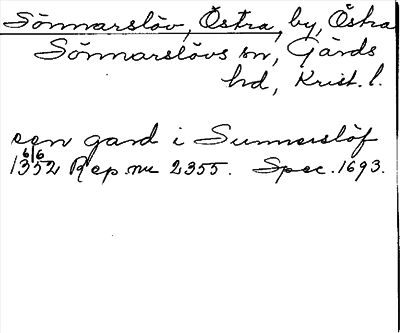 Sönnarslöv, Östra, by, Östra
Sönnarslövs sn, Gärds
hd, Krist. l.
een gard i Sunnerslöf
6/6
1352 Rep. nr 2355. Spec. 1693.